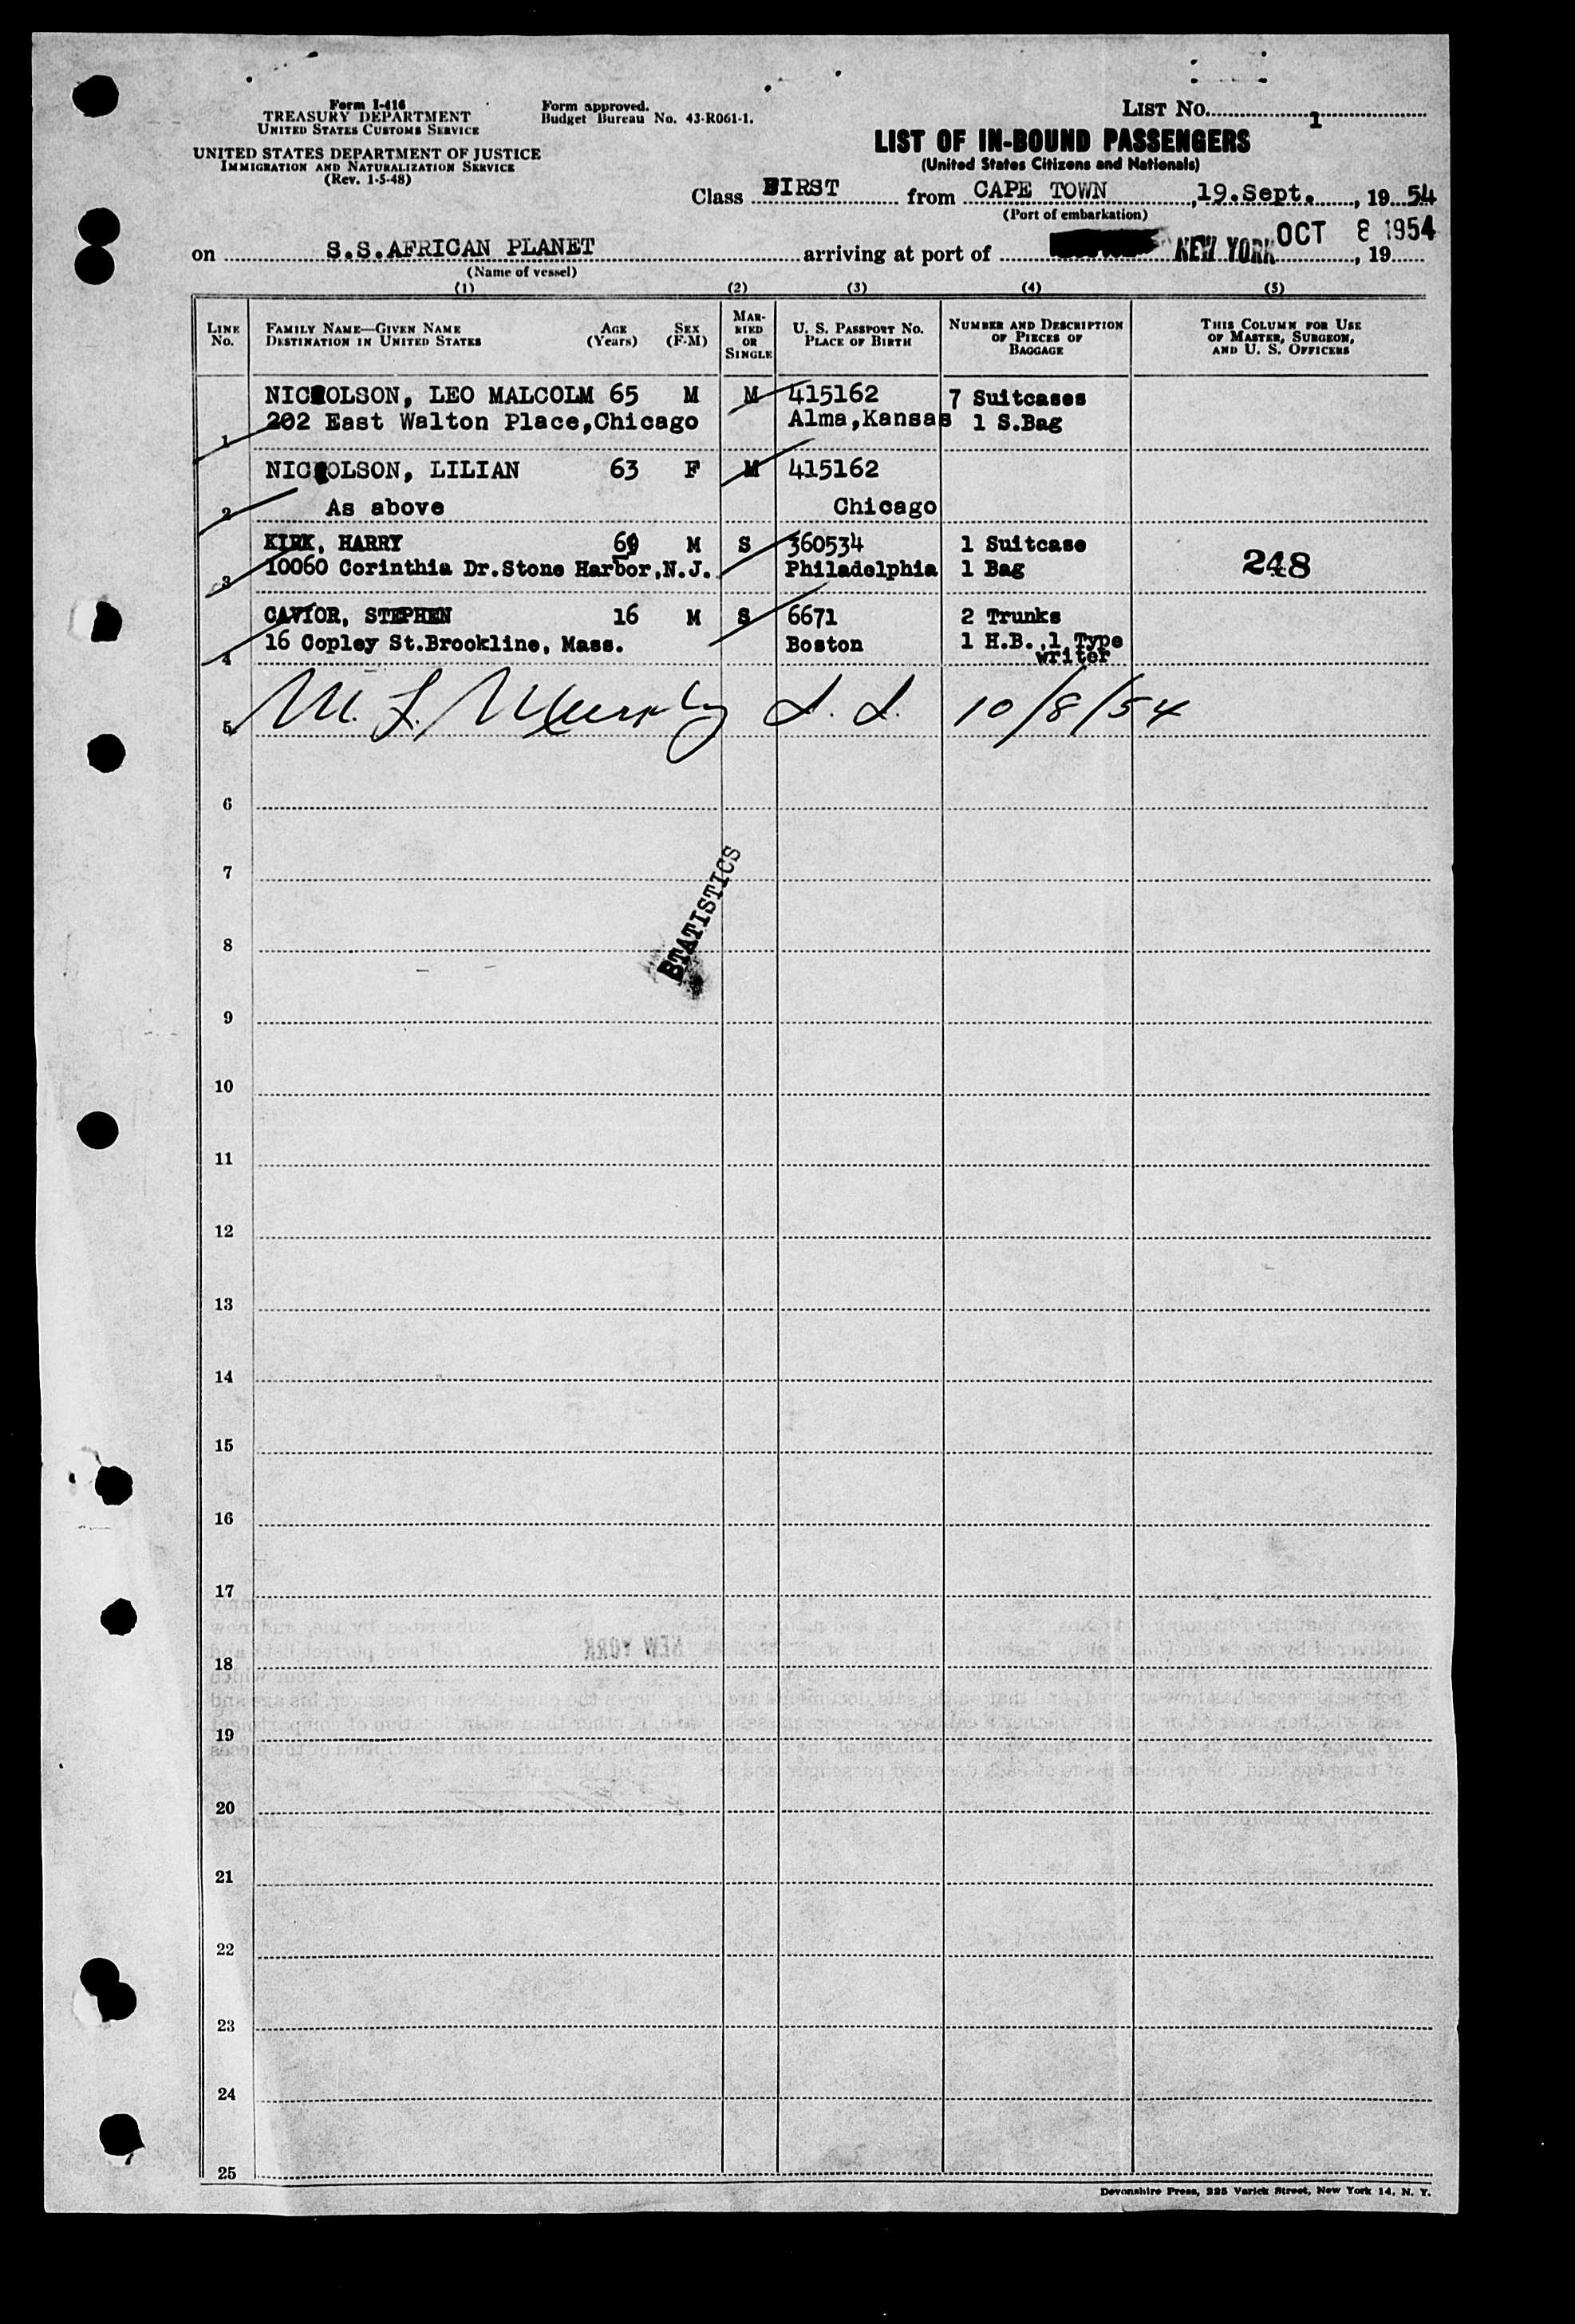 Form I-416
TREASURY DEPARTMENT
UNITED STATES CUSTOMS SERVICE
UNITED STATES DEPARTMENT OF JUSTICE
IMMIGRATION AND NATURALIZATION SERVICE
(Rev. 1-5-48)
Form approved.
Budget Bureau No. 43-R061-1.
LIST No. 1
LIST OF IN-BOUND PASSENGERS
(United States Citizens and Nationals)
Class FIRST from CAPE TOWN, 19.Sept., 1954
(Port of embarkation)
on S.S.AFRICAN PLANET arriving at port of NEW YORK OCT 8 1954, 19
(Name of vessel)
(1) (2) (3) (4) (5)
LINE No. FAMILY NAME—GIVEN NAME DESTINATION IN UNITED STATES AGE (Years) SEX (F-M) MARRIED OR SINGLE U. S. PASSPORT NO. PLACE OF BIRTH NUMBER AND DESCRIPTION OF PIECES OF BAGGAGE THIS COLUMN FOR USE OF MASTER, SURGEON, AND U. S. OFFICERS
NICHOLSON, LEO MALCOLM 65 M M 415162 7 Suitcases
1 202 East Walton Place,Chicago Alma,Kansas 1 S.Bag
NICHOLSON, LILIAN 63 F M 415162
2 As above Chicago
KIRK, HARRY M S 360534 1 Suitcase
3 10060 Corinthia Dr.Stone Harbor,N.J. Philadelphia 1 Bag 248
CAVIOR, STEPHEN 16 M S 6671 2 Trunks
4 16 Copley St.Brookline, Mass. Boston 1 H.B.,1 Type
writer
5 M. J. Murphy I. I. 10/8/54
6
7
STATISTICS
8
9
10
11
12
13
14
15
16
17
18
NEW YORK
19
20
21
22
23
24
25
Devonshire Press, 225 Varick Street, New York 14, N. Y.